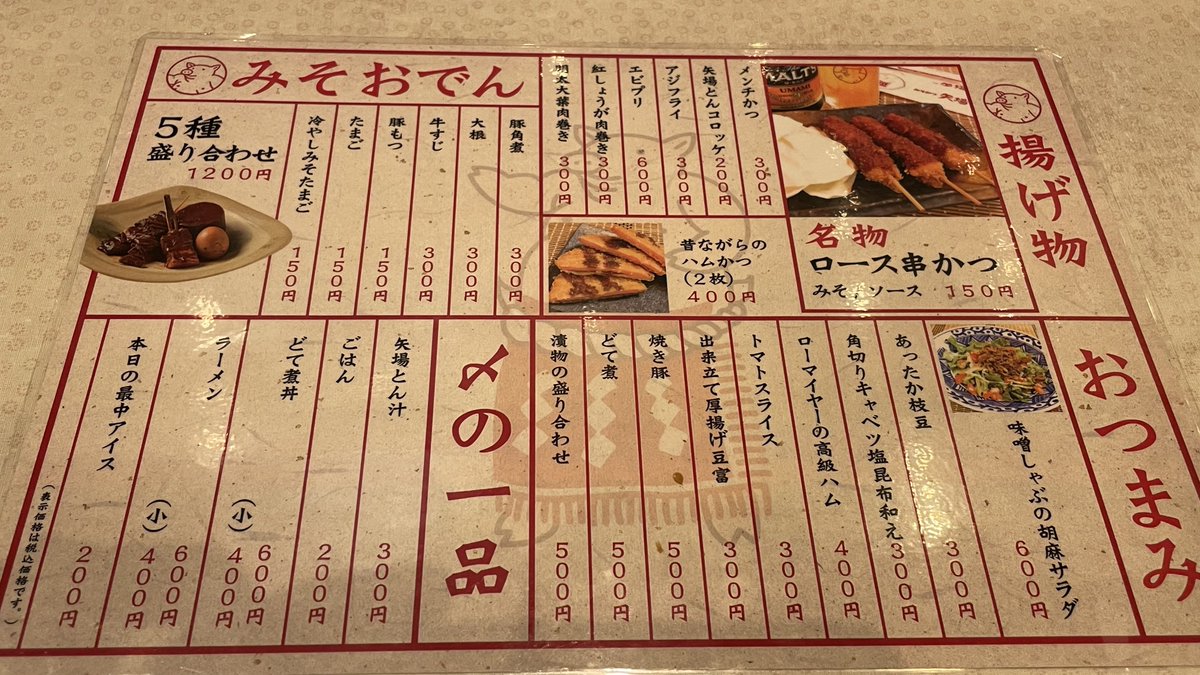 揚げ物
名物
ロース串かつ
みそ、ソース 150円
メンチかつ 300円
矢場とんコロッケ 200円
アジフライ 300円
エビプリ 600円
紅しょうが肉巻き 300円
明太大葉肉巻き 300円
昔ながらの
ハムかつ
(2枚)
400円
みそおでん
豚角煮 300円
大根 300円
牛すじ 300円
豚もつ 150円
たまご 150円
冷やしみそたまご 150円
5種
盛り合わせ
1200円
おつまみ
味噌しゃぶの胡麻サラダ 600円
あったか枝豆 300円
角切りキャベツ塩昆布和え 300円
ローマイヤーの高級ハム 400円
トマトスライス 300円
出来立て厚揚げ豆富 300円
焼き豚 500円
どて煮 500円
漬物の盛り合わせ 500円
〆の一品
矢場とん汁 300円
ごはん 200円
どて煮丼 600円
(小) 400円
ラーメン 600円
(小) 400円
本日の最中アイス 200円
(表示価格は税込価格です。)
MALT'S
UMAMI